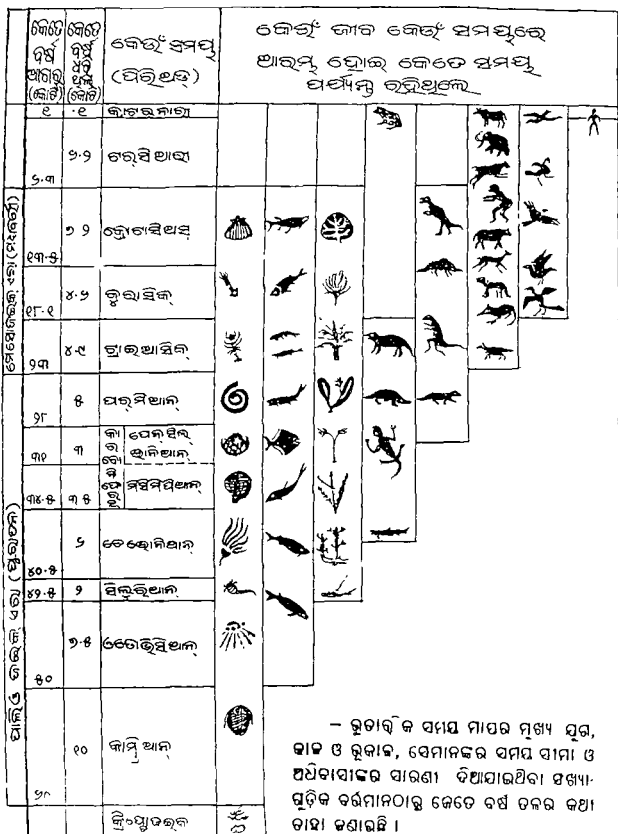 କେତେ ବର୍ଷ ଆଗରୁ (କୋଟି)
କେତେ ବର୍ଷ ଧରି ଥିଲା (କୋଟି)
କେଉଁ ସମୟ (ପିରିଅଡ୍)
କେଉଁ ଜୀବ କେଉଁ ସମୟରେ
ଆରମ୍ଭ ହୋଇ କେତେ ସମୟ
ପର୍ଯ୍ୟନ୍ତ ରହିଥିଲେ
୧ ·୧ କ୍ୱାଟରନାରୀ
୬·୩ ୬·୨ ଟର୍ସିଆରୀ
ମେସୋଜଇକ୍ ଏରା (ମଧ୍ୟଜୀବୀ)
୧୩·୫ ୭·୨ କ୍ରୋଟାସିଅସ୍
୧୮·୧ ୪·୬ ଜୁରାସିକ୍
୨୩ ୪·୯ ଟ୍ରାଇଆସିକ୍
ପାଲିଓଜଇକ୍ ଏରା (ପୁରାତନ)
୨୮ ୫ ପର୍ମିଆନ୍
କାରବୋନିଫେରୁ
୩୧ ୩ ପେନ୍‌ସିଲ୍‌ଭାନିଆନ୍
୩୪·୫ ୩·୫ ମସିସିପିଆନ୍
୪୦·୫ ୬ ଡେଭୋନିଆନ୍
୪୨·୫ ୨ ସିଲୁରିଆନ୍
୫୦ ୭·୫ ଓଡୋଭିସିଆନ୍
୬୦ ୧୦ କାମ୍ବ୍ରିଆନ୍
କ୍ରିପ୍ଟୋଜଇକ
– ଭୂତାତ୍ତ୍ୱିକ ସମୟ ମାପର ମୁଖ୍ୟ ଯୁଗ,
କାଳ ଓ ଭୂକାଳ, ସେମାନଙ୍କର ସମୟ ସୀମା ଓ
ଅଧିବାସୀଙ୍କର ସାରଣୀ ଦିଆଯାଇଥିବା ସଂଖ୍ୟା-
ଗୁଡ଼ିକ ବର୍ତ୍ତମାନଠାରୁ କେତେ ବର୍ଷ ତଳର କଥା
ତାହା ଜଣାଉଛି ।